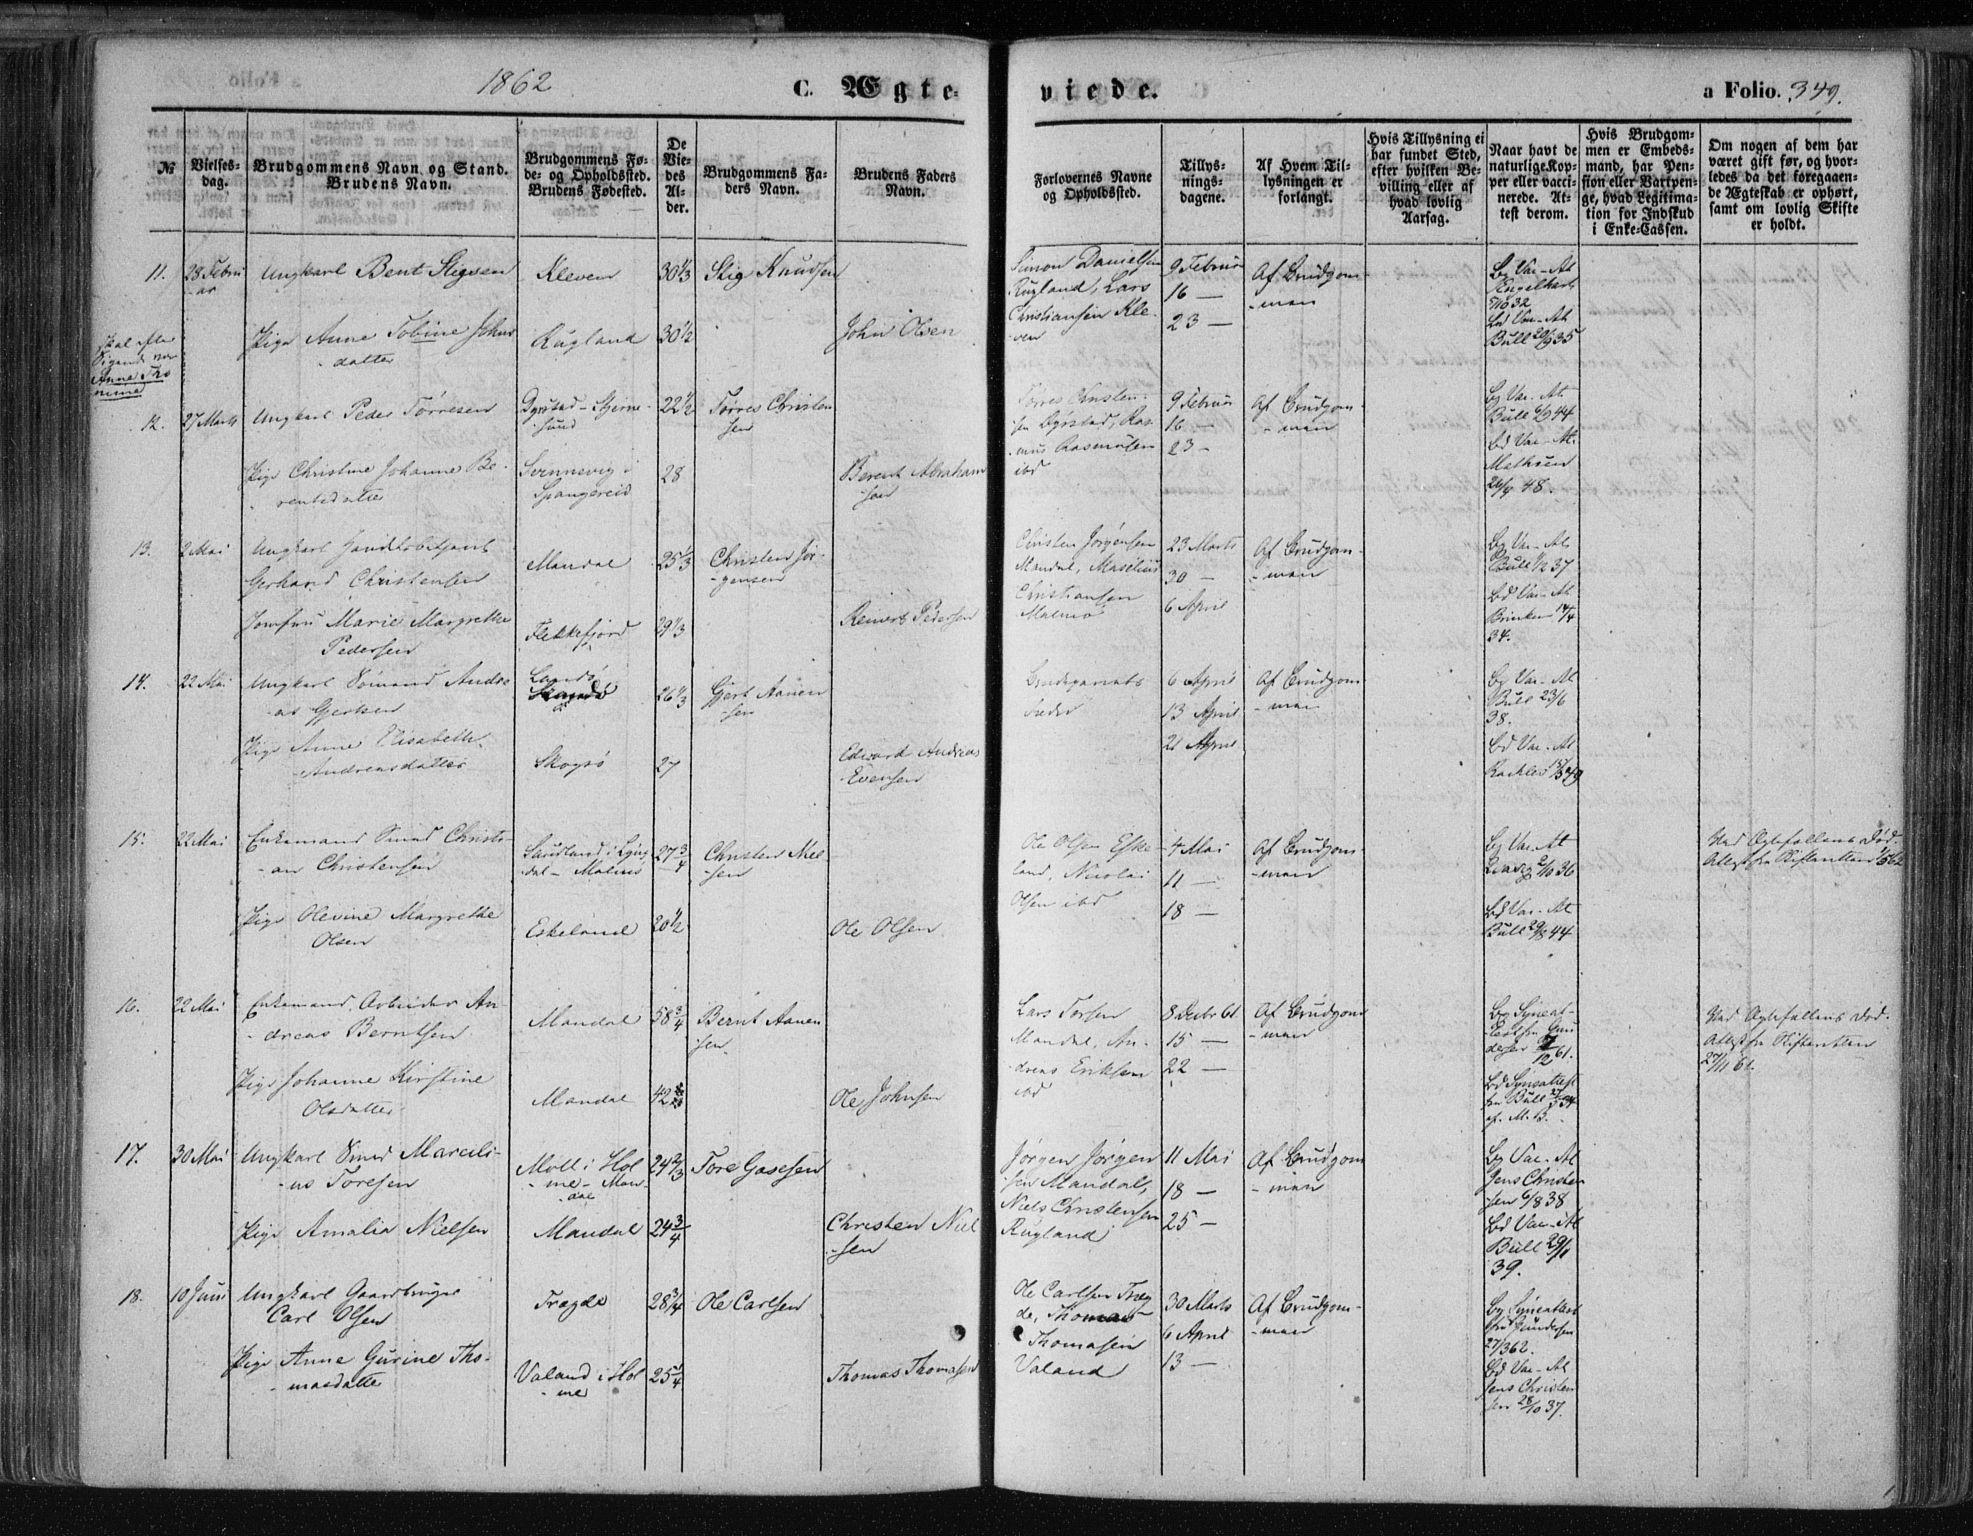 1862 C. Ægte-
viede. a Folio. 349.
№
Vielses-
dag.
Brudgommens Navn og Stand.
Brudens Navn.
Brudgommens Fø-
de- og Opholdssted.
Brudens Fødested.
De
Vie-
des
Al-
der.
Brudgommens Fa-
ders Navn.
Brudens Faders
Navn.
Forlovernes Navne
og Opholdssted.
Tillys-
nings-
dagene.
Af Hvem Til-
lysningen er
forlangt.
Hvis Tillysning ei
har fundet Sted,
efter hvilken Be-
villing eller af
hvad lovlig
Aarsag.
Naar havt de
naturlige Kop-
per eller vacci-
nerede. At-
test derom.
Hvis Brudgom-
men er Embeds-
mand, har Pen-
sion eller Vartpen-
ge, hvad Legitima-
tion for Indskud
i Enke-Cassen.
Om nogen af dem har
været gift før, og hvor-
ledes da det foregaaen-
de Ægteskab er ophørt,
samt om lovlig Skifte
er holdt.
11. 28 Febru
-ar
Ungkarl Bent Stigsen
Kleven
30 1/3
Stig Knudsen
Simon Danielsen
Rugland, Lars
Christiansen Kle-
ven
9 Februar
16 —
23 —
Af Brudgom-
-man
Bg Vac-At
Engelhart
5/10 32
Bd Vac-At
Bull 20/9 35
Skal efter
Anne Tro
nine
Pige Anne Tobine Johns
datter
Rugland
30 1/2
John Olsen
12. 27 Marts
Ungkarl Peder Tørresen
Dyrstad - Stjerne-
sund
22 1/2
Tørres Christen
sen
Tørres Christen-
sen Dyrstad, Ras-
mus Rasmusen
ibd
9 Februar
16 —
23 —
Af Brudgom-
-man
Bg Vac-At
Bull 6/9 44
Bd Vac-At.
Mathsen
24/9 48.
Pige Christine Johanne Be-
rentsdatter
Svennevig i
Spangereid
28
Berent Abraham
sen
13. 2 Mai
Ungkarl Handelsbetjent
Gerhard Christensen
Mandal
25 1/3
Christen Jør-
-gensen
Christen Jørgensen
Mandal, Maselius
Christiansen
Malmø
23 Marts
30 —
6 April
Af Brudgom-
-man
Bg Vac-At
Bull 1/2 37
Bd Vac-At
Brinken 14/4
34.
Jomfru Marie Margrethe
Pedersen
Flekkefjord
29 1/3
Reinert Pedersen
14. 22 Mai
Ungkarl Sømand Andre
-as Gjertsen
Landø
26 1/3
Gjert Aanen
-sen
Brudeparrets
Fædre
6 April
13 April
21 April
Af Brudgom-
-man
Bg Vac-At
Bull 23/6
38.
Bd Vac-At
Pige Anne Elisabeth
Andreasdatter
Skogsø
27
Edvard Andreas
Evensen
15. 22 Mai
Enkemand Smed Christi-
-an Christensen
Saudland i Lyng
dal - Malmø
27 3/4
Christen Niel
-sen
Ole Olsen Eske-
land, Nicolai
Olsen ibd
4 Mai
11 —
18 —
Af Brudgom-
-man
Bg Vac-At
2/10 36
Bd Vac-At
Bull 29/8 44
Ved Ægtefællens Død.
Attest fra Skifteretten
Pige Olevine Margrethe
Olsen
Eskeland
20 1/2
Ole Olsen
16. 22 Mai
Enkemand Arbeider An-
-dreas Berntsen
Mandal
58 3/4
Bernt Aanen
sen
Lars Torsen
Mandal, An-
dreas Eriksen
ibd
8 Decbr 61
15 —
22 —
Af Brudgom
-man
Bg Syneat-
test fra Gun
dersen
12 61.
Bd Synsattest
fra Bull
af M. B.
Ved Ægtefællens Død.
Attest fra Skifteretten
27/11 61.
Pige Johanne Kirstine
Olsdatter
Mandal
42
Ole Johnsen
17. 30 Mai
Ungkarl Smed Marceli-
-us Toresen
Moll i Hol
-me- Man-
dal
24 2/3
Tore Gasesen
Jørgen Jørgen
-sen Mandal,
Niels Christensen
Rugland
11 Mai
18 —
25 —
Af Brudgom
-man
Bg Vac-At
Jens Christen
sen 6/8 38
Bd Vac-At
Bull 29/11
39.
Pige Amalia Nielsen
Mandal
24 3/4
Christen Niel
-sen
18. 10 Juni
Ungkarl Gaardbruger
Carl Olsen
Trægde
28 3/4
Ole Carlsen
Ole Carlsen Træg
de, Thomas
Thomasen
Valand
30 Marts
6 April
13 —
Af Brudgom-
-man
Bg Syneattest
fra Gundersen
27/3 62.
Bd Vac-At
Jens Christen
sen 28/10 37.
Pige Anne Gurine Tho-
-masdatter
Valand i Hol
-me
25 1/4
Thomas Thomasen